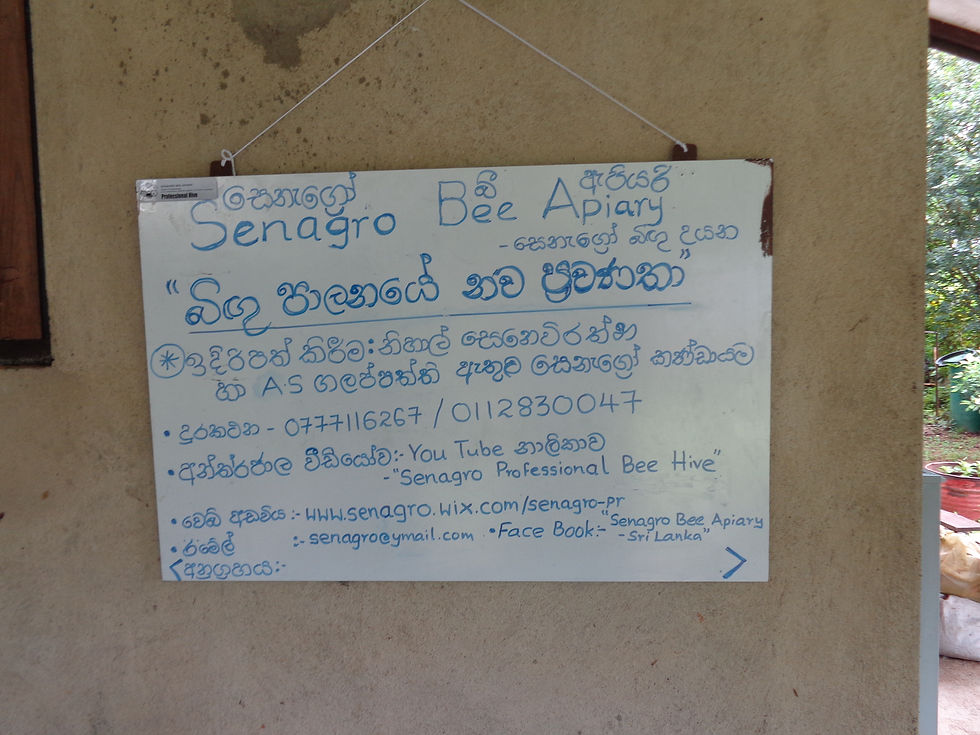 Professional Hive
සෙනැග්‍රෝ බී ඇපියරි
Senagro Bee Apiary
-සෙනැග්‍රෝ බිඟු දයන
"බිඟු පාලනයේ නව ප්‍රවණතා"
* ඉදිරිපත් කිරීම: නිහාල් සෙනෙවිරත්න
හා A.S ගලප්පත්ති ඇතුළු සෙනැග්‍රෝ කණ්ඩායම
• දුරකථන - 0777116267 / 0112830047
• අන්තර්ජාල වීඩියෝව:- You Tube නාලිකාව
-"Senagro Professional Bee Hive"
• වෙබ් අඩවිය :- www.senagro.wix.com/senagro-pr
• ඊමේල් :- senagro@ymail.com • Face Book:- "Senagro Bee Apiary
- Sri Lanka"
<අනුග්‍රහය:- >